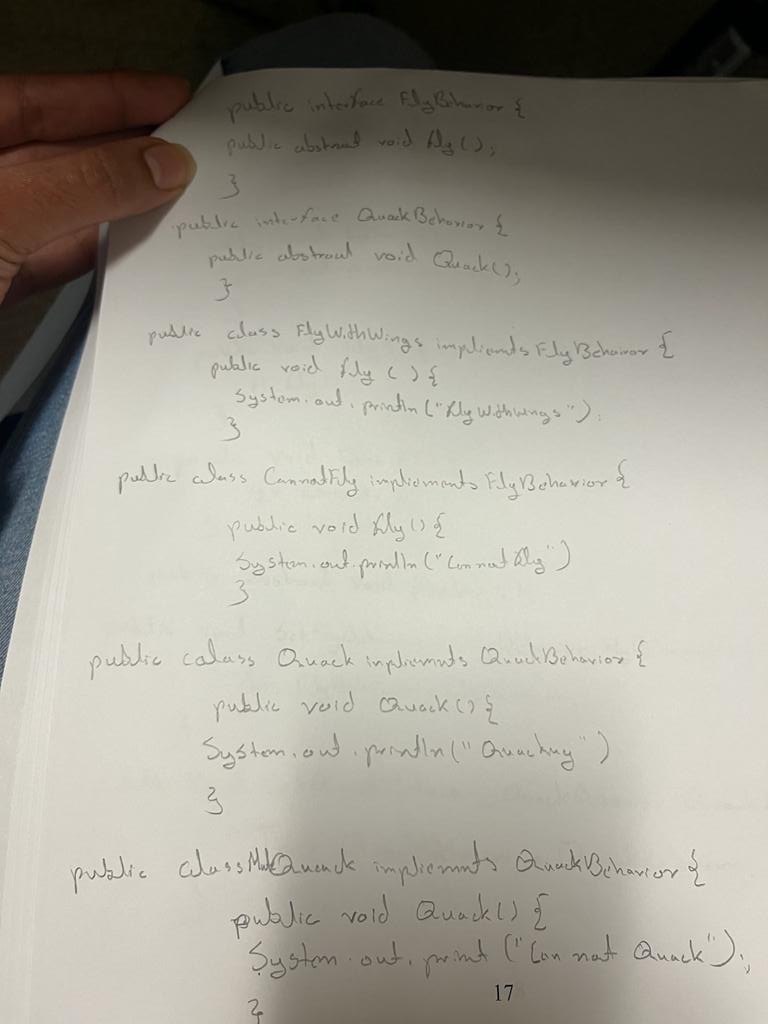 public interface FlyBehavior {
public abstract void fly();
}
public interface QuackBehavior {
public abstract void Quack();
}
public class FlyWithWings implements FlyBehavior {
public void fly () {
System.out.println("FlyWithwings");
}
public class CannotFly implements FlyBehavior {
public void fly() {
System.out.println("Can not fly")
}
public calass Quack implements QuackBehavior {
public void Quack() {
System.out.println("Quacking")
}
public class MuteQuack implements QuackBehavior {
public void Quack() {
System.out.print ("Can not Quack");
}
17